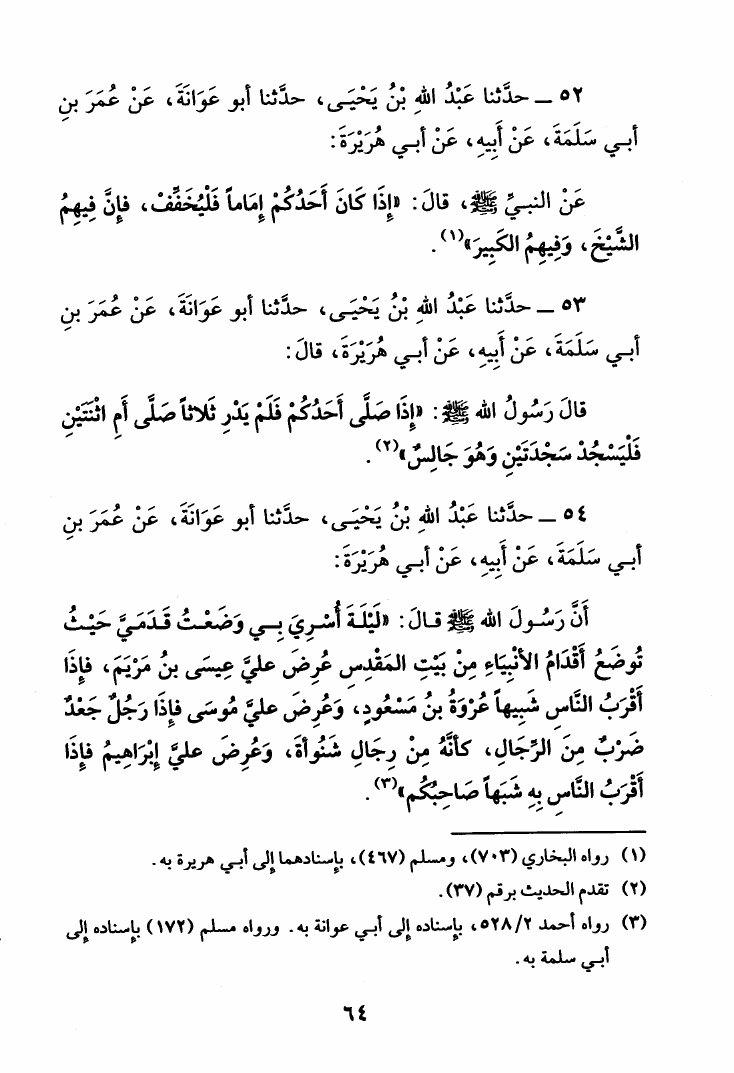 ٥٢ ــ حدَّثنا عَبْدُ اللهِ بْنُ يَحْيَـى، حدَّثنا أبو عَوَانَةَ، عَنْ عُمَرَ بنِ
أبـي سَلَمَةَ، عَنْ أَبِيهِ، عَنْ أبـي هُرَيْرَةَ:
عَنْ النبـيِّ ﷺ، قالَ: «إِذَا كَانَ أَحَدُكُمْ إِمَاماً فَلْيُخَفِّفْ، فَإنَّ فِيهِمُ
الشَّيْخَ، وَفِيهِمُ الكَبِيرَ»(١).
٥٣ ــ حدَّثنا عَبْدُ اللهِ بْنُ يَحْيَـى، حدَّثنا أبو عَوَانَةَ، عَنْ عُمَرَ بنِ
أبـي سَلَمَةَ، عَنْ أَبِيهِ، عَنْ أبـي هُرَيْرَةَ، قالَ:
قالَ رَسُولُ الله ﷺ: «إِذَا صَلَّى أَحَدُكُمْ فَلَمْ يَدْرِ ثَلاثاً صَلَّى أَمِ اثْنَتَيْنِ
فَلْيَسْجُدْ سَجْدَتَيْنِ وَهُوَ جَالِسٌ»(٢).
٥٤ ــ حدَّثنا عَبْدُ اللهِ بْنُ يَحْيَـى، حدَّثنا أبو عَوَانَةَ، عَنْ عُمَرَ بنِ
أبـي سَلَمَةَ، عَنْ أَبِيهِ، عَنْ أبـي هُرَيْرَةَ:
أَنَّ رَسُولَ الله ﷺ قالَ: «لَيْلَةَ أُسْرِيَ بِـي وَضَعْتُ قَدَمَيَّ حَيْثُ
تُوضَعُ أَقْدَامُ الأنْبِيَاءِ مِنْ بَيْتِ المَقْدِسِ عُرِضَ عليَّ عِيسَى بنُ مَرْيَمَ، فإِذَا
أَقْرَبُ النَّاسِ شَبِيهاً عُرْوَةُ بنُ مَسْعُودٍ، وَعُرِضَ عليَّ مُوسَى فإِذَا رَجُلٌ جَعْدٌ
ضَرْبٌ مِنَ الرِّجَالِ، كأنَّهُ مِنْ رِجَالِ شَنُوأةَ، وَعُرِضَ عليَّ إبْرَاهِيمُ فإِذَا
أَقْرَبُ النَّاسِ بِهِ شَبَهاً صَاحِبُكُم»(٣).
(١) رواه البخاري (٧٠٣)، ومسلم (٤٦٧)، بإسنادهما إلى أبـي هريرة به.
(٢) تقدم الحديث برقم (٣٧).
(٣) رواه أحمد ٥٢٨/٢، بإسناده إلى أبـي عوانة به. ورواه مسلم (١٧٢) بإسناده إلى
أبـي سلمة به.
٦٤